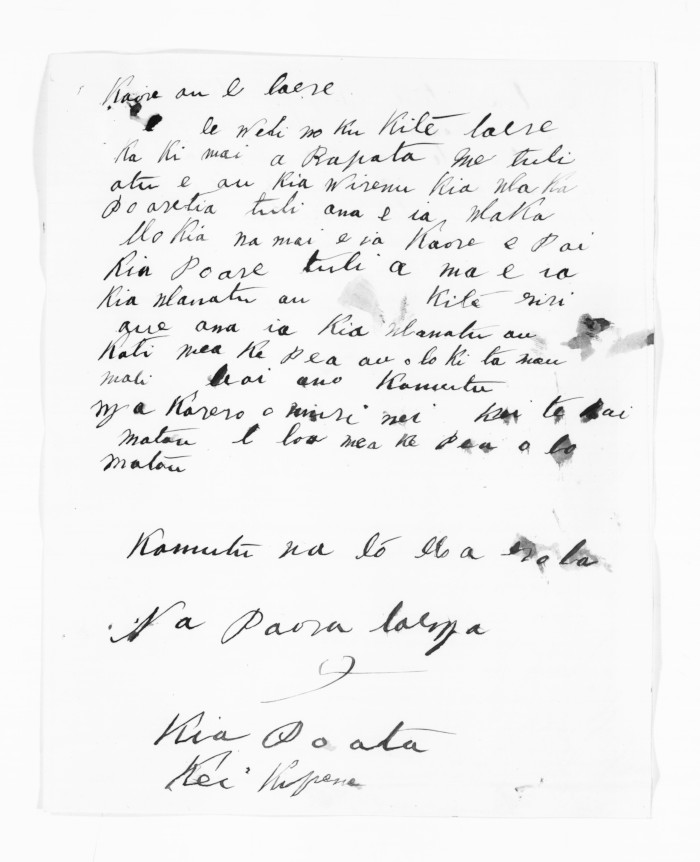 Kaore au e haere
te Weti no ku kite haere
ka ki mai a Rapata me tuhi
atu e au kia Wiremu kia Maka
Poaretia tuhi ana e ia Maka
Mo kia na mai e ia Kaore e Pai
Kia Poare tuhi a ma e ia
kia Manatu au kite riri
que ana ia Kia Manatu au
Kati mea ke Pea au o lo ki ta mau
mahi hoi ano Kamutu
nga Korero o muri nei kei te Pai
matau e loa mea ke Pea o lo
matau
Kamutu na to Hoa
Na Paora haenga
Kia Poata
Kei Kopene